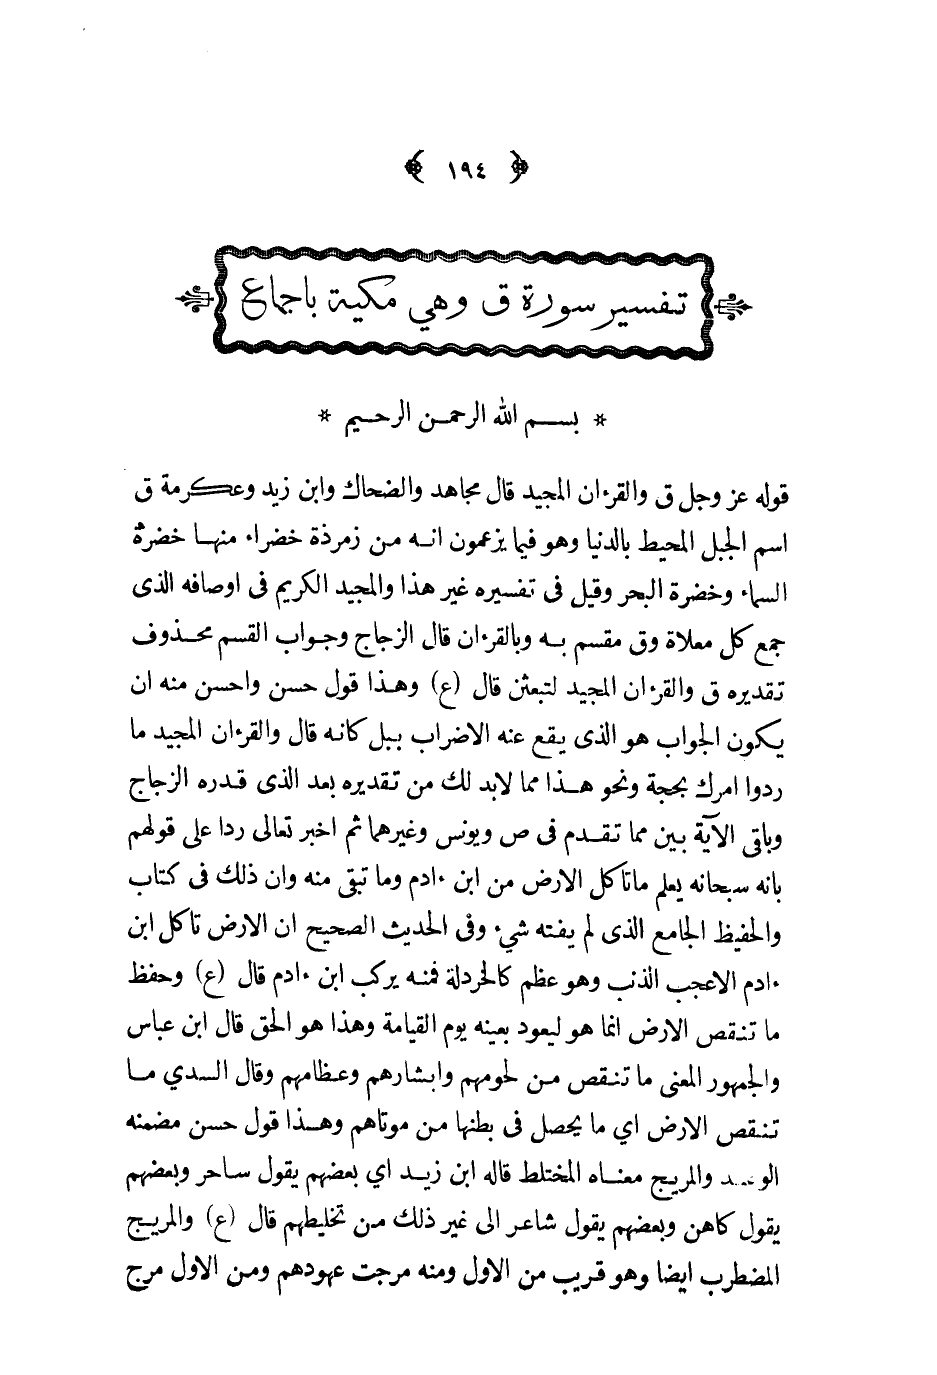 ﴿ ١٩٤ ﴾
تفسير سورة ق وهي مكية باجماع
* بسم الله الرحمن الرحيم *
قوله عز وجل ق والقرءان المجيد قال مجاهد والضحاك وابن زيد وعكرمة ق
اسم الجبل المحيط بالدنيا وهو فيما يزعمون انه من زمرذة خضراء منها خضرة
السماء وخضرة البحر وقيل فى تفسيره غير هذا والمجيد الكريم فى اوصافه الذى
جمع كل معلاة وق مقسم به وبالقرءان قال الزجاج وجواب القسم محذوف
تقديره ق والقرءان المجيد لتبعثن قال (ع) وهذا قول حسن واحسن منه ان
يكون الجواب هو الذى يقع عنه الاضراب ببل كانه قال والقرءان المجيد ما
ردوا امرك بحجة ونحو هذا مما لابد لك من تقديره بعد الذى قدره الزجاج
وباقى الآية بين مما تقدم فى ص ويونس وغيرهما ثم اخبر تعالى ردا على قولهم
بانه سبحانه يعلم ماتاكل الارض من ابن ءادم وما تبقى منه وان ذلك فى كتاب
والحفيظ الجامع الذى لم يفته شيء وفى الحديث الصحيح ان الارض تاكل ابن
ءادم الاعجب الذنب وهو عظم كالخردلة فمنه يركب ابن ءادم قال (ع) وحفظ
ما تنقص الارض انما هو ليعود بعينه يوم القيامة وهذا هو الحق قال ابن عباس
والجمهور المعنى ما تنقص من لحومهم وابشارهم وعظامهم وقال السدي ما
تنقص الارض اي ما يحصل فى بطنها من موتاهم وهذا قول حسن مضمنه
والمريج معناه المختلط قاله ابن زيد اي بعضهم يقول ساحر وبعضهم
يقول كاهن وبعضهم يقول شاعر الى غير ذلك من تخليطهم قال (ع) والمريج
المضطرب ايضا وهو قريب من الاول ومنه مرجت عهودهم ومن الاول مرج